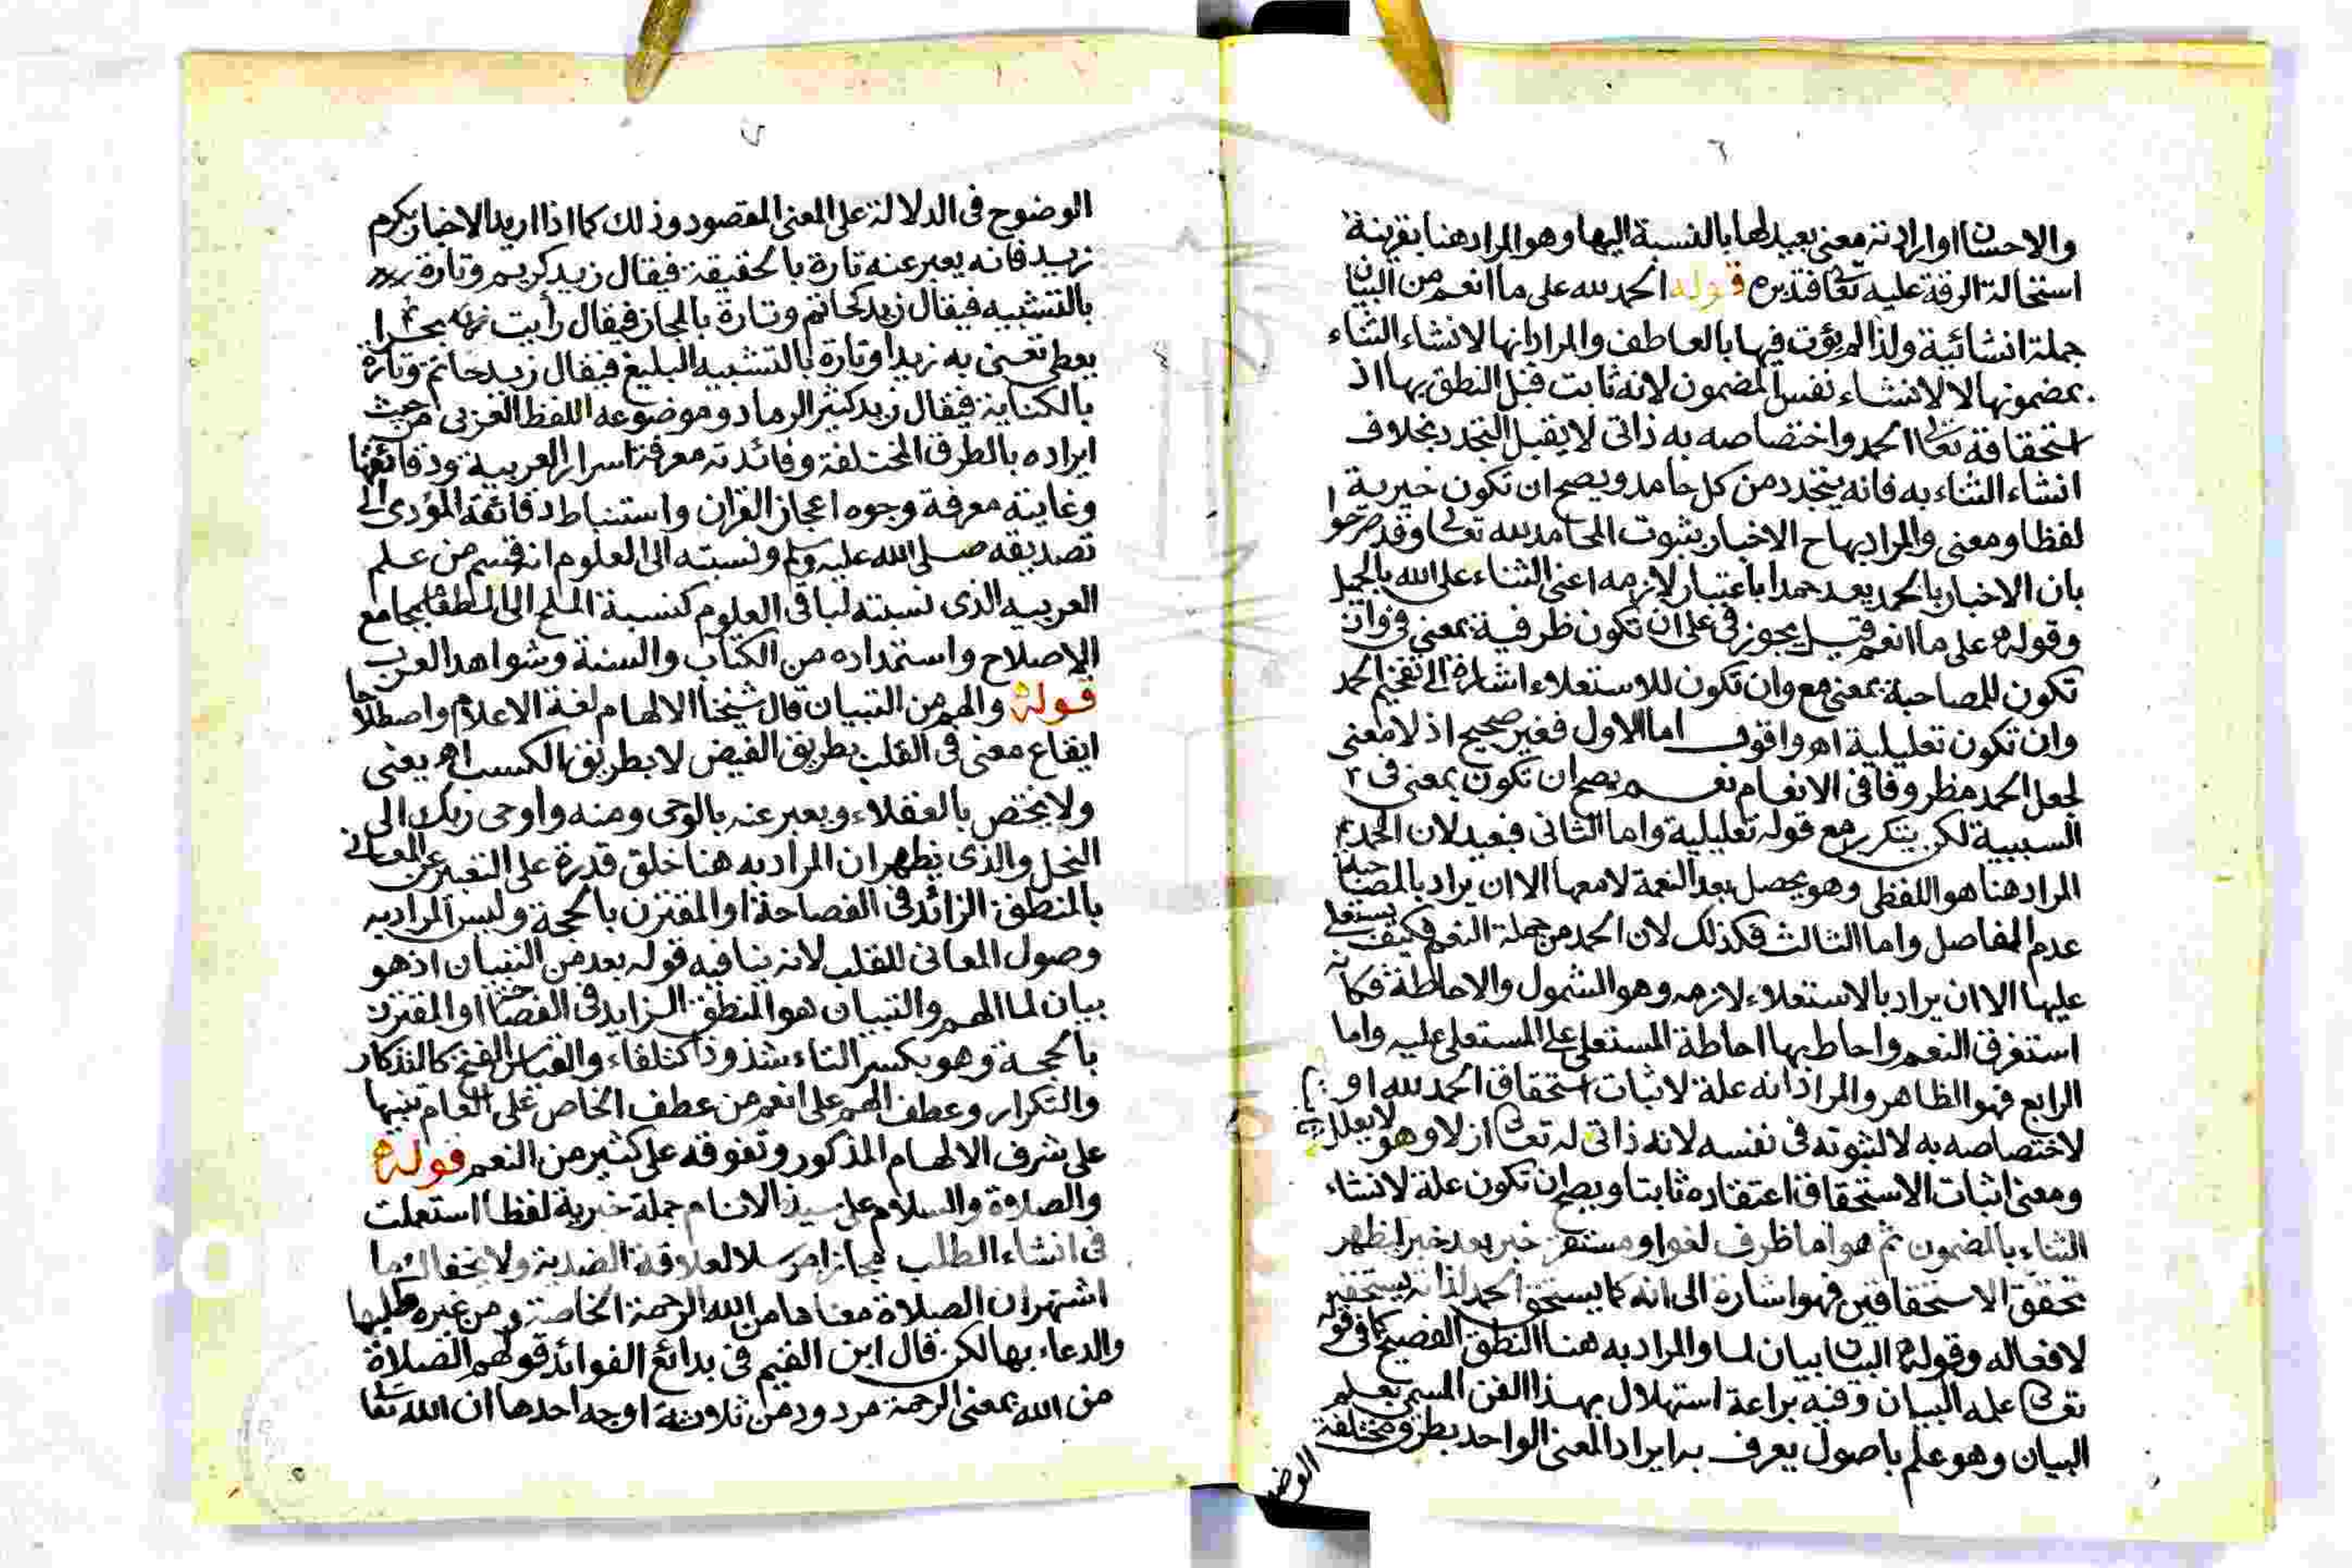 ٦
والاحسان او ارادته معنى بعيد لها بالنسبة اليها وهو المراد هنا بقرينة
استحالة الرقة عليه تعالى فتدبره قوله الحمد لله على ما انعم من البيان
جملة انشائية ولذا لم يؤت فيها بالعاطف والمراد انها لانشاء الثناء
بمضمونها لا لانشاء نفس المضمون لانه ثابت قبل النطق بها اذ
استحقاقة تعالى الحمد واختصاصه به ذاتى لا يقبل التجدد بخلاف
انشاء الثناء به فانه يتجدد من كل حامد ويصح ان تكون خبرية
لفظا ومعنى والمراد بها ح الاخبار بثبوت المحامد لله تعالى وقد صرحوا
بان الاخبار بالحمد يعد حمدا باعتبار لازمه اعنى الثناء على الله بالجميل
وقوله على ما انعم قيل يجوز فى على ان تكون ظرفية بمعنى فى وان
تكون للمصاحبة بمعنى مع وان تكون للاستعلاء اشارة الى تفخيم الحمد
وان تكون تعليلية اهـ واقول اما الاول فغير صحيح اذ لا معنى
لجعل الحمد مظروفا فى الانعام نعم يصح ان تكون بمعنى فى
السببية لكن يتكرر مع قوله تعليلية واما الثانى فبعيد لان الحمد
المراد هنا هو اللفظى وهو يحصل بعد النعمة لا معها الا ان يراد بالمصاحبة
عدم المفاصل واما الثالث فكذلك لان الحمد من جملة النعم فكيف يستعلى
عليها الا ان يراد بالاستعلاء لازمه وهو الشمول والاحاطة فكأنه
استغرق النعم واحاط بها احاطة المستعلى على المستعلى عليه واما
الرابع فهو الظاهر والمراد انه علة لاثبات استحقاق الحمد لله او
لاختصاصه به لا لثبوته فى نفسه لانه ذاتى له تعالى ازلا وهو لا يعلل
ومعنى اثبات الاستحقاق اعتقاده ثابتا ويصح ان تكون علة لانشاء
الثناء بالمضمون ثم هو اما ظرف لغو او مستقر خبر بعد خبر ليظهر
تحقق الاستحقاقين فهو اشارة الى انه كما يستحق الحمد لذاته يستحقه
لافعاله وقوله البيان بيان لما والمراد به هنا النطق الفصيح كما فى قوله
تعالى علمه البيان وفيه براعة استهلال بهذا الفن المسمى بعلم
البيان وهو علم باصول يعرف به ايراد المعنى الواحد بطرق مختلفة
الوضو
٧
الوضوح فى الدلالة على المعنى المقصود وذلك كما اذا اريد الاخبار بكرم
زيد فانه يعبر عنه تارة بالحقيقة فيقال زيد كريم وتارة
بالتشبيه فيقال زيد كحاتم وتارة بالمجاز فيقال رأيت بحرا
يعطى تعنى به زيدا وتارة بالتشبيه البليغ فيقال زيد حاتم وتارة
بالكناية فيقال زيد كثير الرماد وموضوعه اللفظ العربى من حيث
ايراده بالطرق المختلفة وفائدته معرفة اسرار العربية ودقائقها
وغايته معرفة وجوه اعجاز القران واستنباط دقائقة المؤدى الى
تصديقه صلى الله عليه وسلم ونسبته الى العلوم انه قسم من علم
العربيه الذى نسبته لباقى العلوم كنسبة الملح الى الطعام بجامع
الاصلاح واستمداده من الكتاب والسنة وشواهد العرب
قوله والهم من التبيان قال شيخنا الالهام لغة الاعلام واصطلاحا
ايقاع معنى فى القلب بطريق الفيض لا بطريق الكسب اهـ يعنى
ولا يختص بالعقلاء ويعبر عنه بالوحى ومنه واوحى ربك الى
النحل والذى يظهر ان المراد به هنا خلق قدرة على التعبير عن المعانى
بالمنطق الزائد فى الفصاحة او المقترن بالحجة وليس المراد به
وصول المعانى للقلب لانه ينافيه قوله بعد من التبيان اذ هو
بيان لما الهم والتبيان هو المنطق الزايد فى الفصاحة او المقترن
بالحجة وهو بكسر التاء شذوذا كتلقاء والقياس الفتح كالتذكار
والتكرار وعطف الهم على انعم من عطف الخاص على العام تنبيها
على شرف الالهام المذكور وتفوقه على كثير من النعم قوله
والصلاة والسلام على سيد الانام جملة خبرية لفظا استعملت
فى انشاء الطلب مجازا مرسلا لعلاقة الضدية ولا يخفاك ما
اشتهر ان الصلاة معناها من الله الرحمة الخاصة ومن غيره طلبها
والدعاء بها لكن قال ابن القيم فى بدائع الفوائد قولهم الصلاة
من الله بمعنى الرحمة مردود من ثلاثة اوجه احدها ان الله تعالى